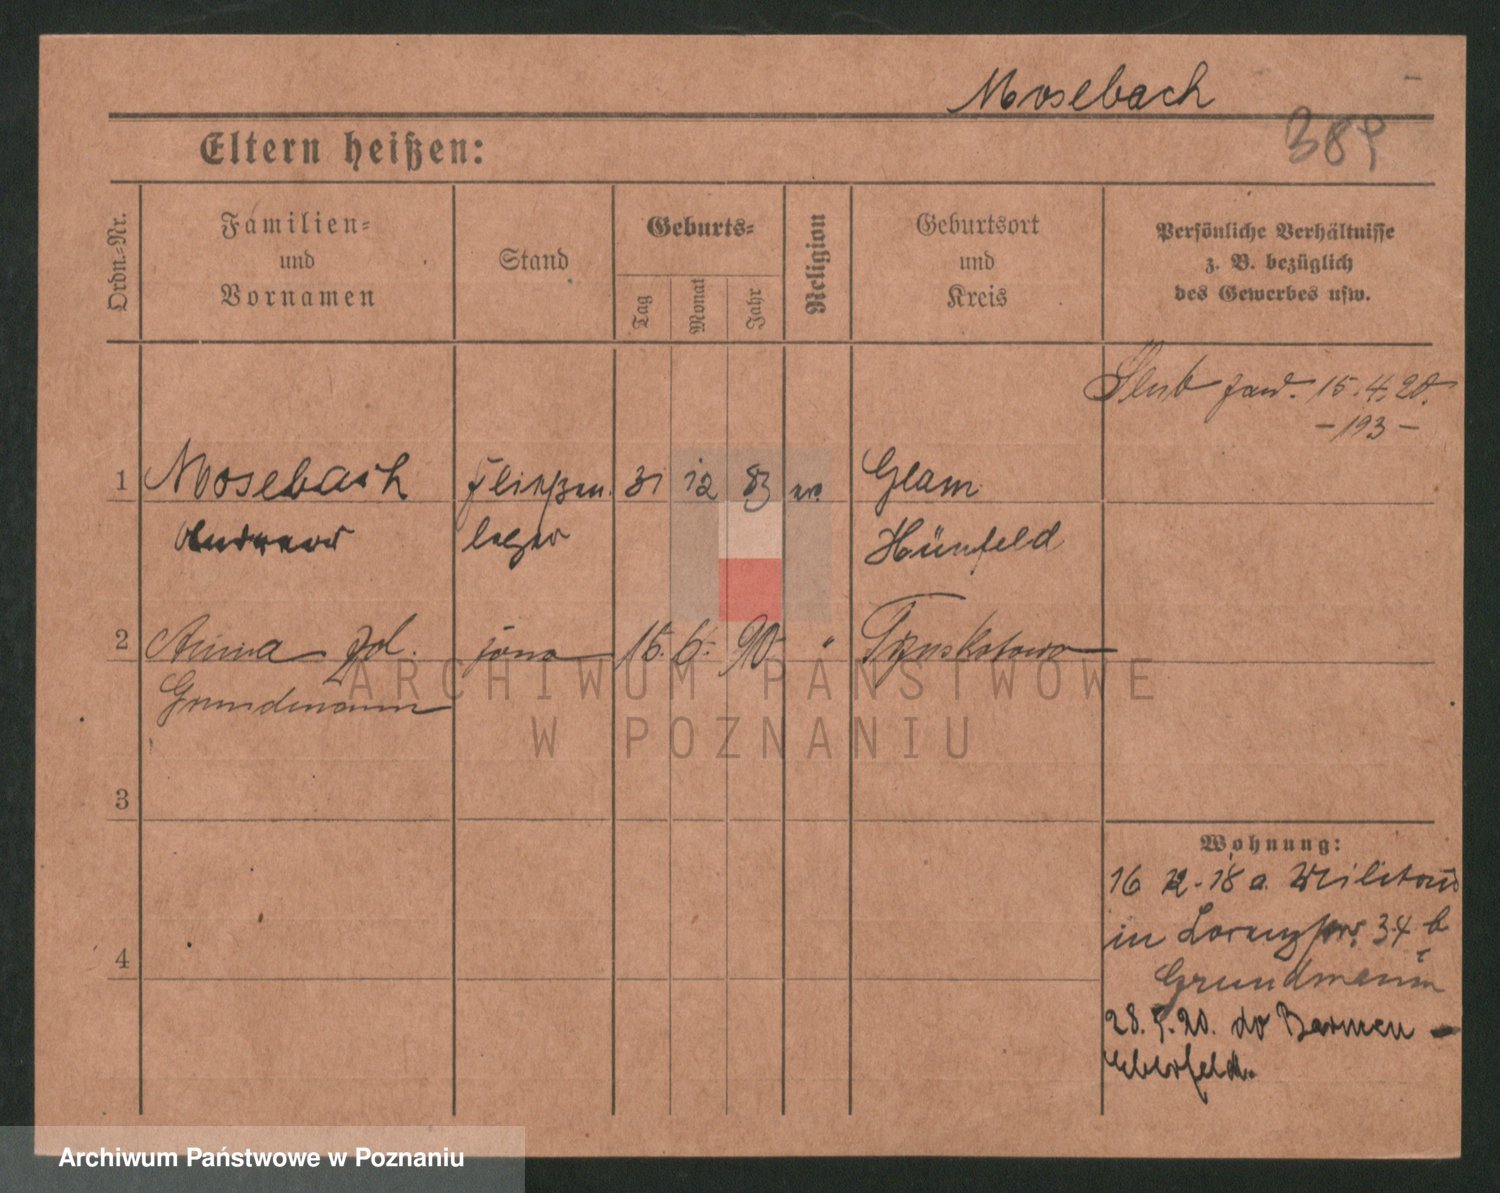 Mosebach
389
Eltern heißen:
Ordn.-Nr.
Familien-
und
Vornamen
Stand
Geburts-
Tag
Monat
Jahr
Religion
Geburtsort
und
Kreis
Persönliche Verhältnisse
z. B. bezüglich
des Gewerbes usw.
Ślub zaw. 15.4.20.
-193-
1 Mosebach 31 12 83 ev. Glam
Andreas leger Hünfeld
2 Anna żona 15. 6. 90 "
Grundmann
3
4
Wohnung:
16 12-18 a. Militär
in 34 b
Grundmann
28.5.20. do Barmen -
Elberfeld.
ARCHIWUM PAŃSTWOWE
W POZNANIU
Archiwum Państwowe w Poznaniu